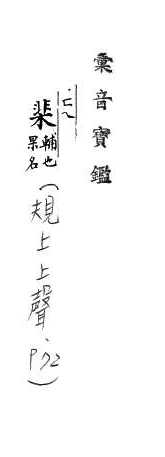 彙音寶鑑
棐 輔也
果名
(規上上聲·P72)